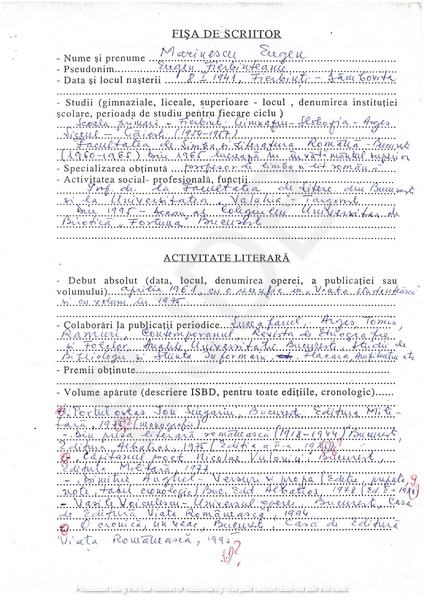 FIŞA DE SCRIITOR
- Nume şi prenume Marinescu Eugen
- Pseudonim Eugen Fierbinţeanu
- Data şi locul naşterii 8.I.1941, Fierbinţi - Dâmboviţa
- Studii (gimnaziale, liceale, superioare - locul , denumirea instituţiei
şcolare, perioada de studiu pentru fiecare ciclu )
Şcoala primară - Fierbinţi. Gimnaziu - Slobozia - Argeş
Liceul - Găeşti (1954-1957)
Facultatea de Limba şi Literatura Română - Bucureşti
(1960-1965) Din 1965 lucrează în învăţământul superior
- Specializarea obţinută profesor de limba şi lit. română
- Activitatea social- profesională, funcţii
Prof. dr. la Facultatea de Litere din Bucureşti
şi la Universitatea "Valahia" - Târgovişte
Din 1995 - al Colegiului Universitar de
"Fortuna" Bucureşti
ACTIVITATE LITERARĂ
- Debut absolut (data, locul, denumirea operei, a publicaţiei sau
volumului) aprilie 1961, cu o în "Viaţa studenţească"
şi cu volum în 1975
- Colaborări la publicaţii periodice Luceafărul, Argeş, Tomis,
Ramuri, Contemporanul, Revista de Etnografie
şi Folclor, Analele Universităţii Bucureşti, Studii de
Bibliologie şi Ştiinţa Informării, Flacăra
- Premii obţinute
- Volume apărute (descriere ISBD, pentru toate ediţiile, cronologic)
Portul ostaş Ion Bucureşti, Editura Mili-
tară, 1975 (monografie)
- Din presa literară românească (1918-1944) Bucureşti,
Editura Albatros, 1975 (Ediţia a II-a
Căpitanul poet Nicolae Vulovici, Bucureşti,
Editura Militară, 1977
- Dimitrie Anghel - Versuri şi proză (Ediţie, prefaţă,
note, tabel cronologic) Buc. Ed. Albatros, 1978
- Vasile Voiculescu - Universul operei, Bucureşti, Casa
de Editură Viaţa Românească, 1994
- O cronică un veac, Bucureşti, Casa de Editură
Viaţa Românească, 1995